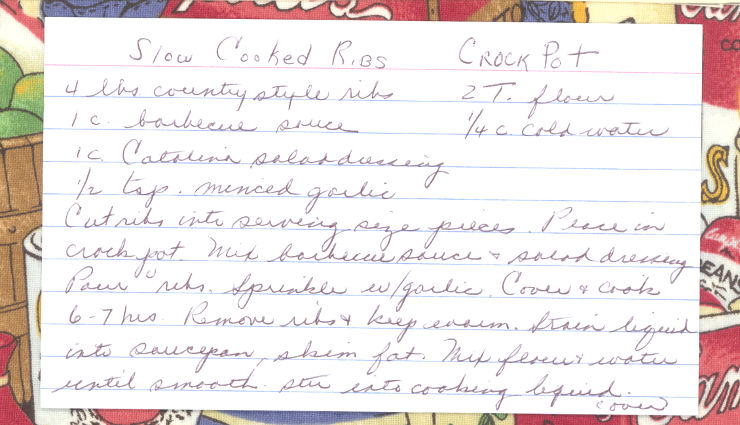 Slow Cooked Ribs Crock Pot
4 lbs country style ribs 2 T. flour
1 c. barbecue sauce 1/4 c. cold water
1 c. Catalina salad dressing
1/2 tsp. minced garlic
Cut ribs into serving size pieces. Place in
crock pot. Mix barbecue sauce + salad dressing
Pour " ribs. Sprinkle w/garlic. Cover & cook
6-7 hrs. Remove ribs & keep warm. Strain liquid
into saucepan, skim fat. Mix flour & water
until smooth. stir into cooking liquid.
(over)